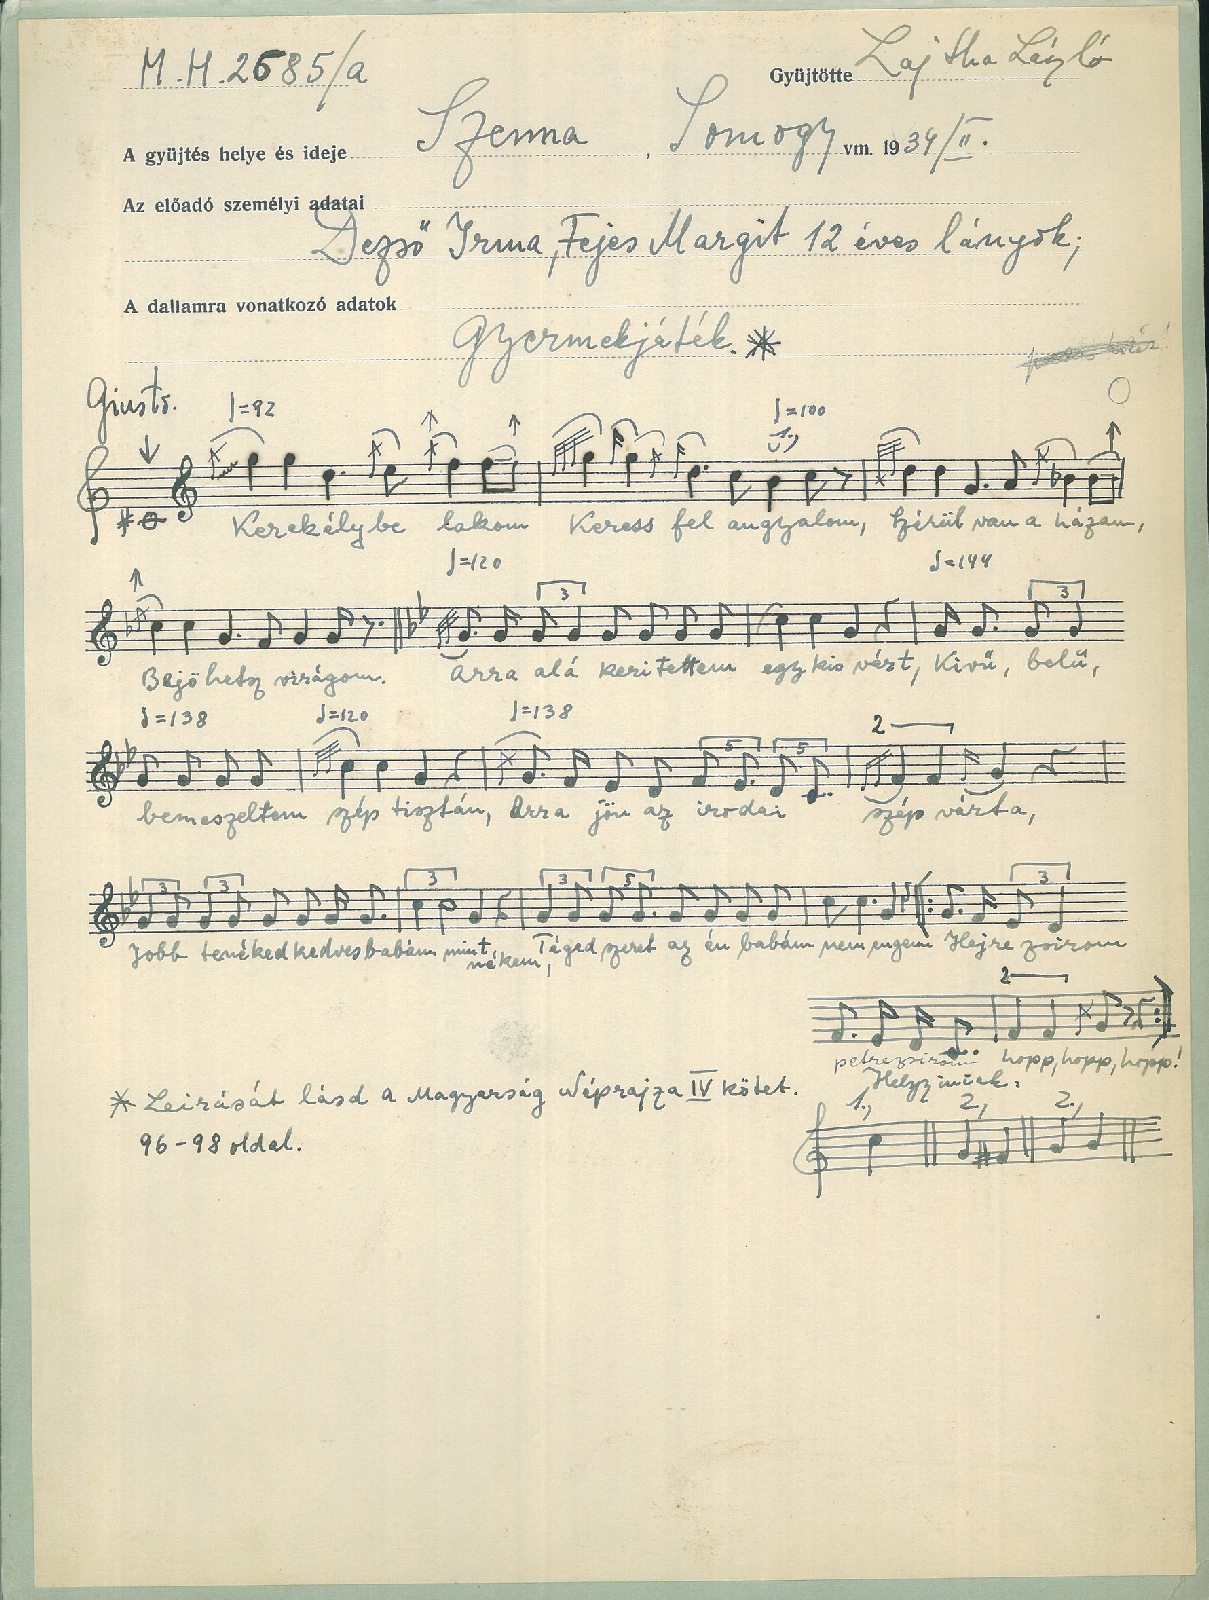 M.H. 2685/a
Gyüjtötte Lajtha László
A gyüjtés helye és ideje Szenna, Somogy vm. 1934/II.
Az előadó személyi adatai
Dezső Irma, Fejes Margit 12 éves lányok;
A dallamra vonatkozó adatok
Gyermekjáték. *
Giusto.
♩=92
♩=100
1.,
Kerekélybe lakom Keress fel angyalom, Szérűl van a házam,
♩=120
♩=144
3
3
Bejöhetsz virágom. Arra alá kerítettem egy kis várt, Kivű, belű,
♩=138
♩=120
♩=138
2
5
5
bemeszeltem szép tisztán, Arra jön az irodai szép várta,
3
3
3
3
5
3
Jobb tenéked kedves babám mint nékem, Téged szeret az én babám nem engem Hejre zsirom
2
petrezsirom hopp, hopp, hopp!
* Leirását lásd a Magyarság Néprajza IV kötet.
96-98 oldal.
1., 2., 2.,